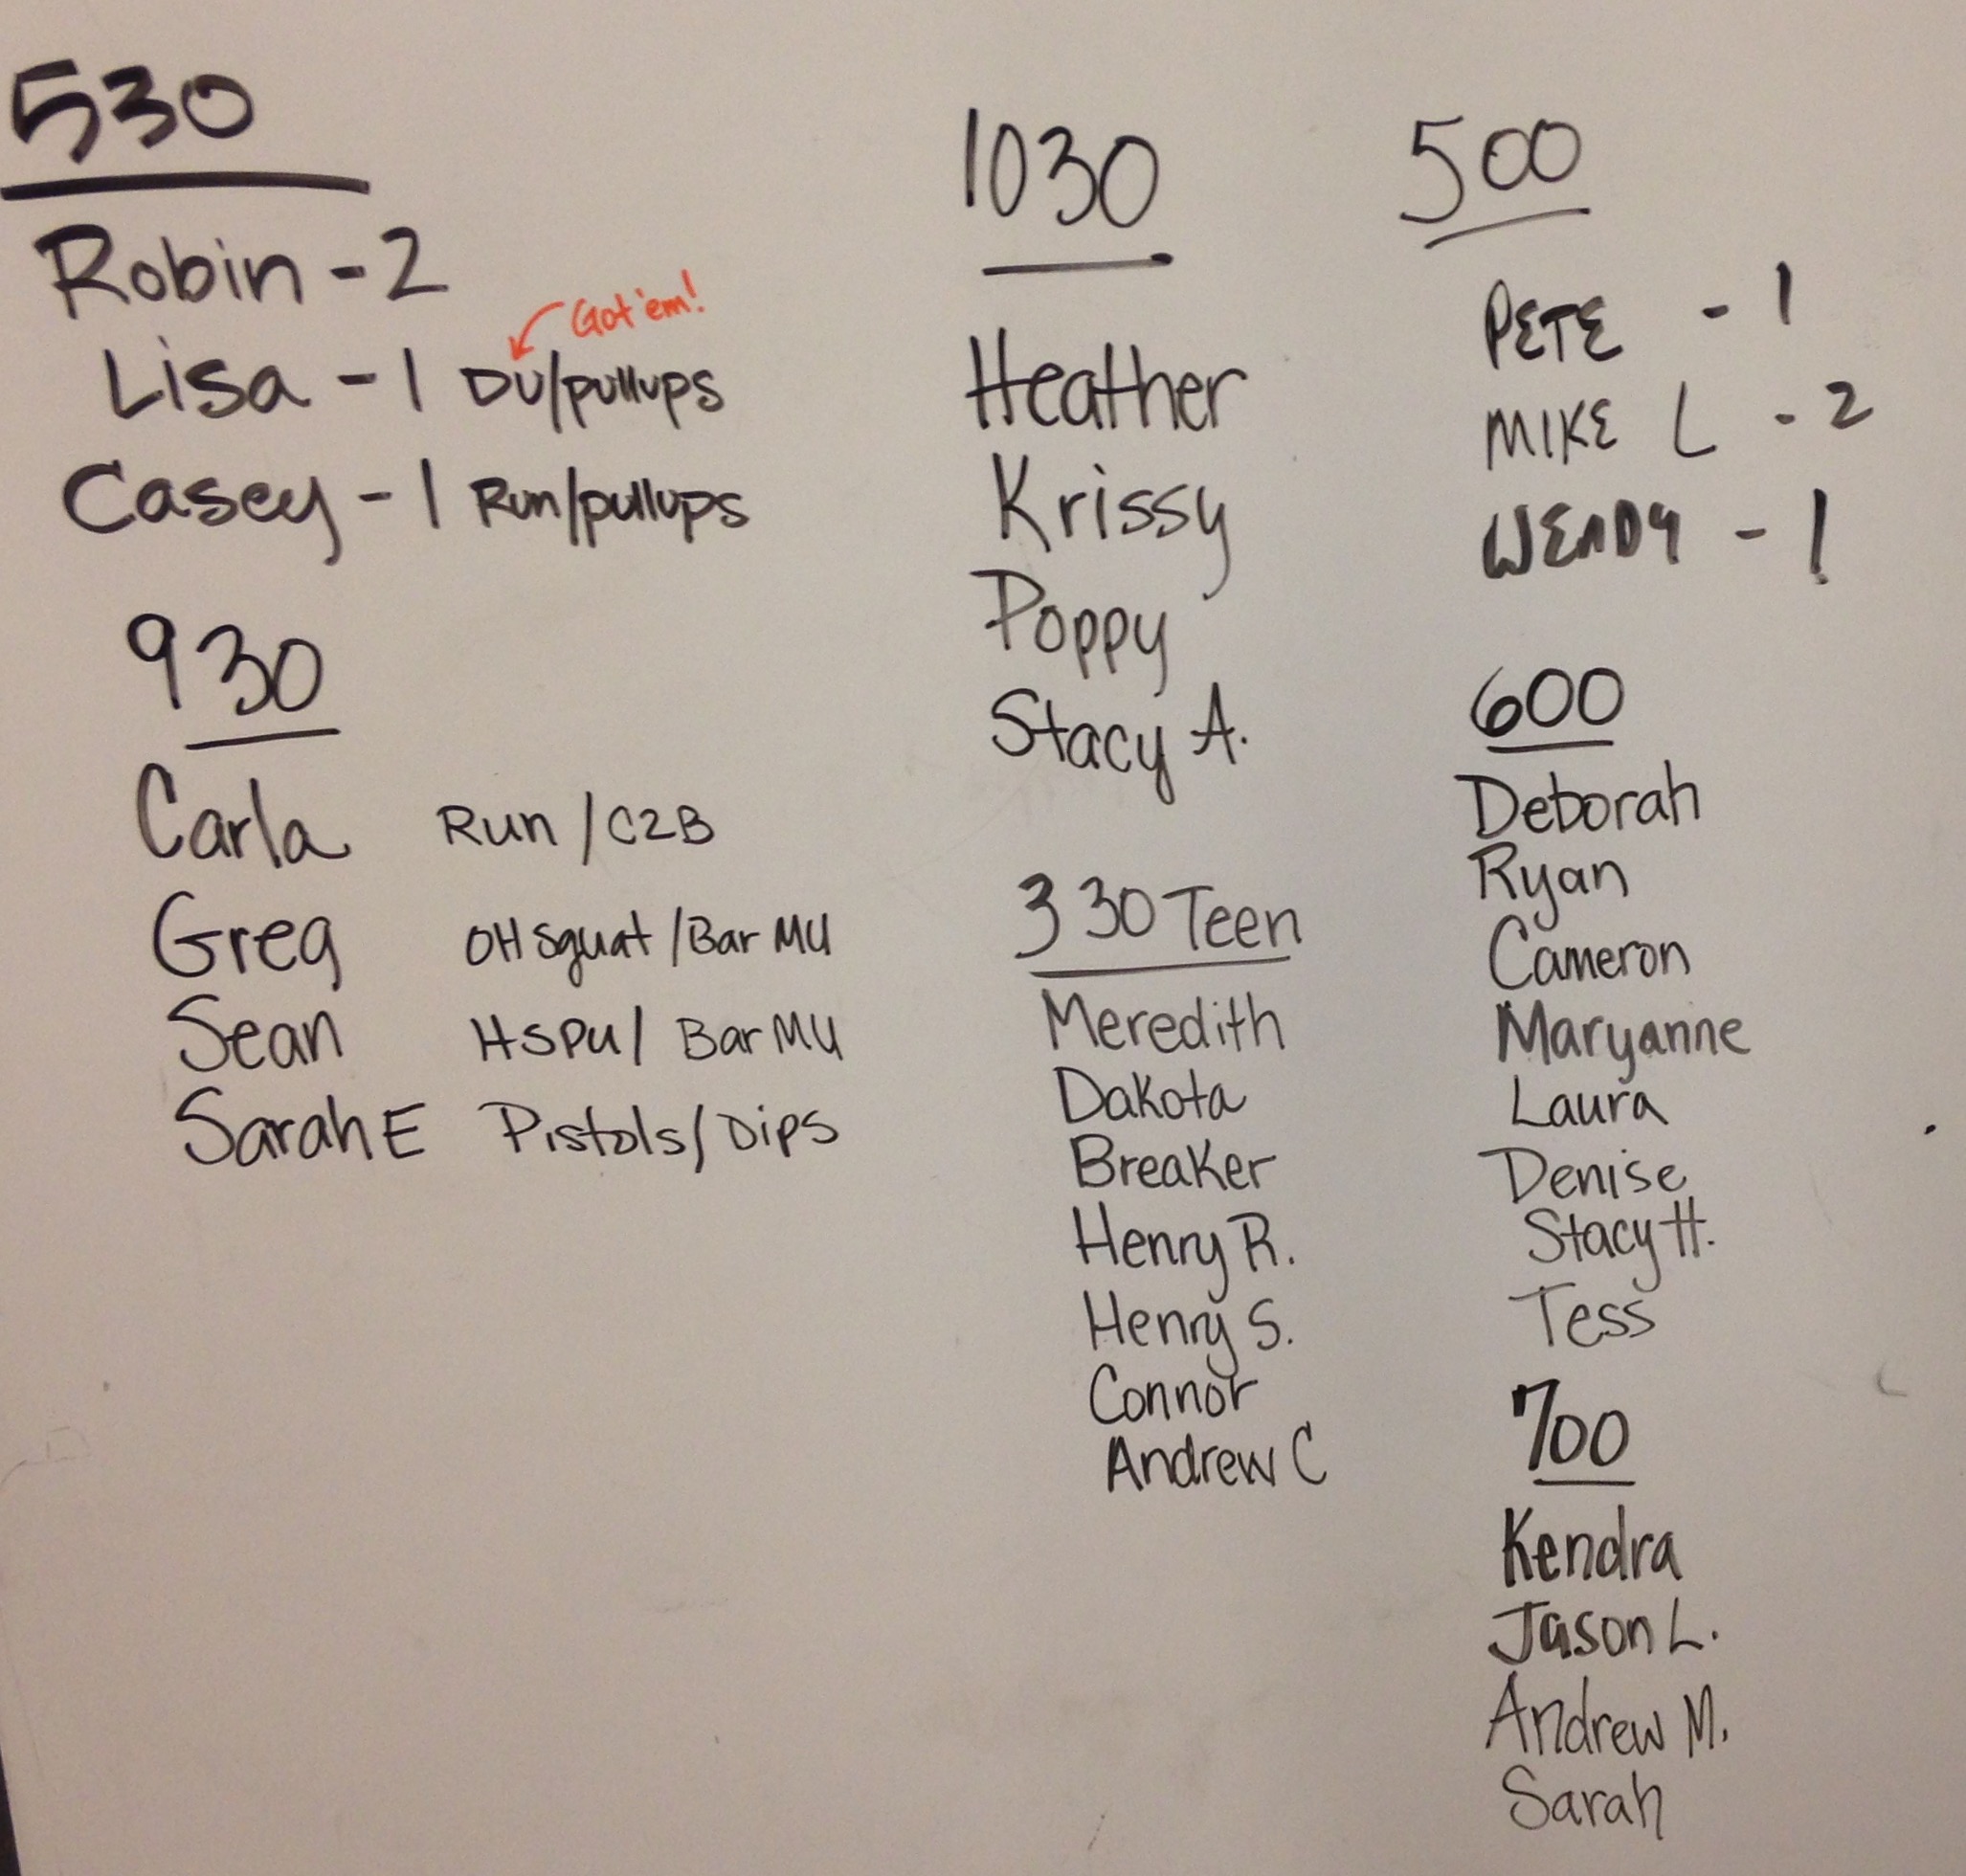 530
Robin - 2
Got 'em!
Lisa - 1 DU/pullups
Casey - 1 Run/pullups
930
Carla Run / C2B
Greg OH Squat / Bar MU
Sean HSPU / Bar MU
Sarah E Pistols / Dips
1030
Heather
Krissy
Poppy
Stacy A.
330 Teen
Meredith
Dakota
Breaker
Henry R.
Henry S.
Connor
Andrew C
500
PETE - 1
MIKE L - 2
WENDY - 1
600
Deborah
Ryan
Cameron
Maryanne
Laura
Denise
Stacy H.
Tess
700
Kendra
Jason L.
Andrew M.
Sarah